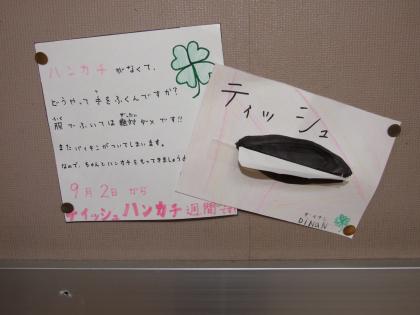 ハンカチ がなくて、
どうやって 手をふくんですか?
ふく ぜったい
服でふいては 絶対 ダメです!!
またバイキンがついてしまいます。
なので、ちゃんとハンカチをもってきましょう
9月2日 から
ティッシュハンカチ週間
ティッシュ
DINAN